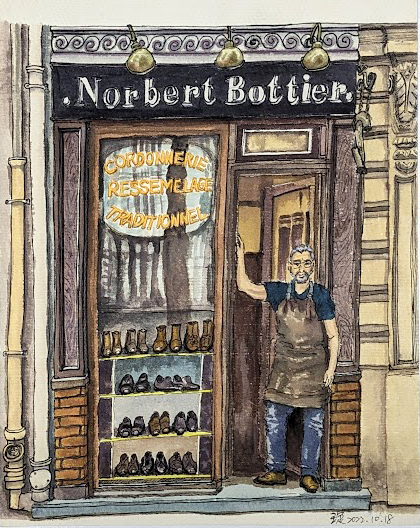 .Norbert Bottier.
CORDONNERIE
RESSEMELAGE
TRADITIONNEL
2022.10.18